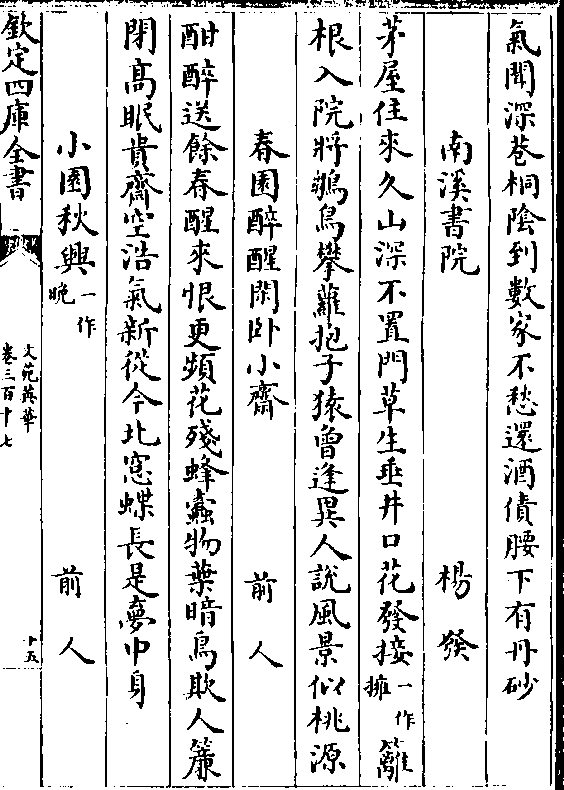 氣聞深巷桐隂到數家不愁還酒債腰下有丹砂
南溪書院　楊發
茅屋住來久山深不置門草生垂井口花發接一作擁籬
根入院將雛鳥攀蘿抱子猿曾逢異人說風景似桃源
春園醉醒閑卧小齋　前人
酣醉送餘春醒來恨更頻花殘蜂蠧物葉暗鳥欺人簾
閉髙眠貴齋空浩氣新從今北窓蝶長是夢中身
小園秋興一作晩　前人
欽定四庫全書
文苑英華
卷三百十七
十五